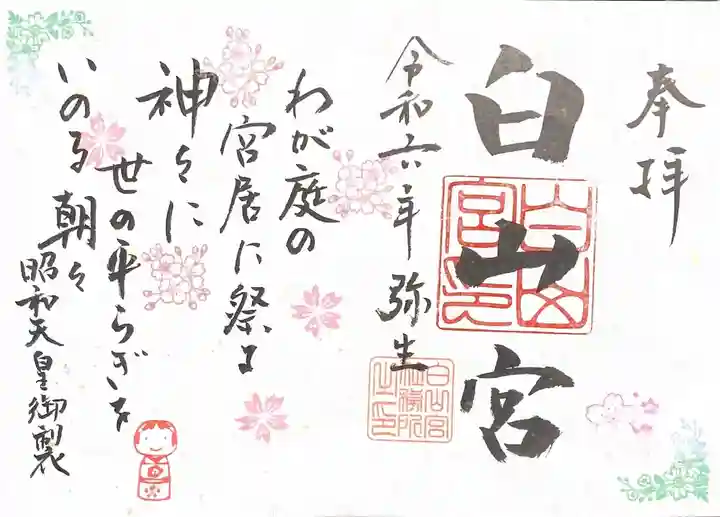 奉拝
白山宮
白山宮印
令和六年 弥生
白山宮社務所之印
わが庭の
宮居に祭る
神々に
世の平らぎを
いのる朝々
昭和天皇御製